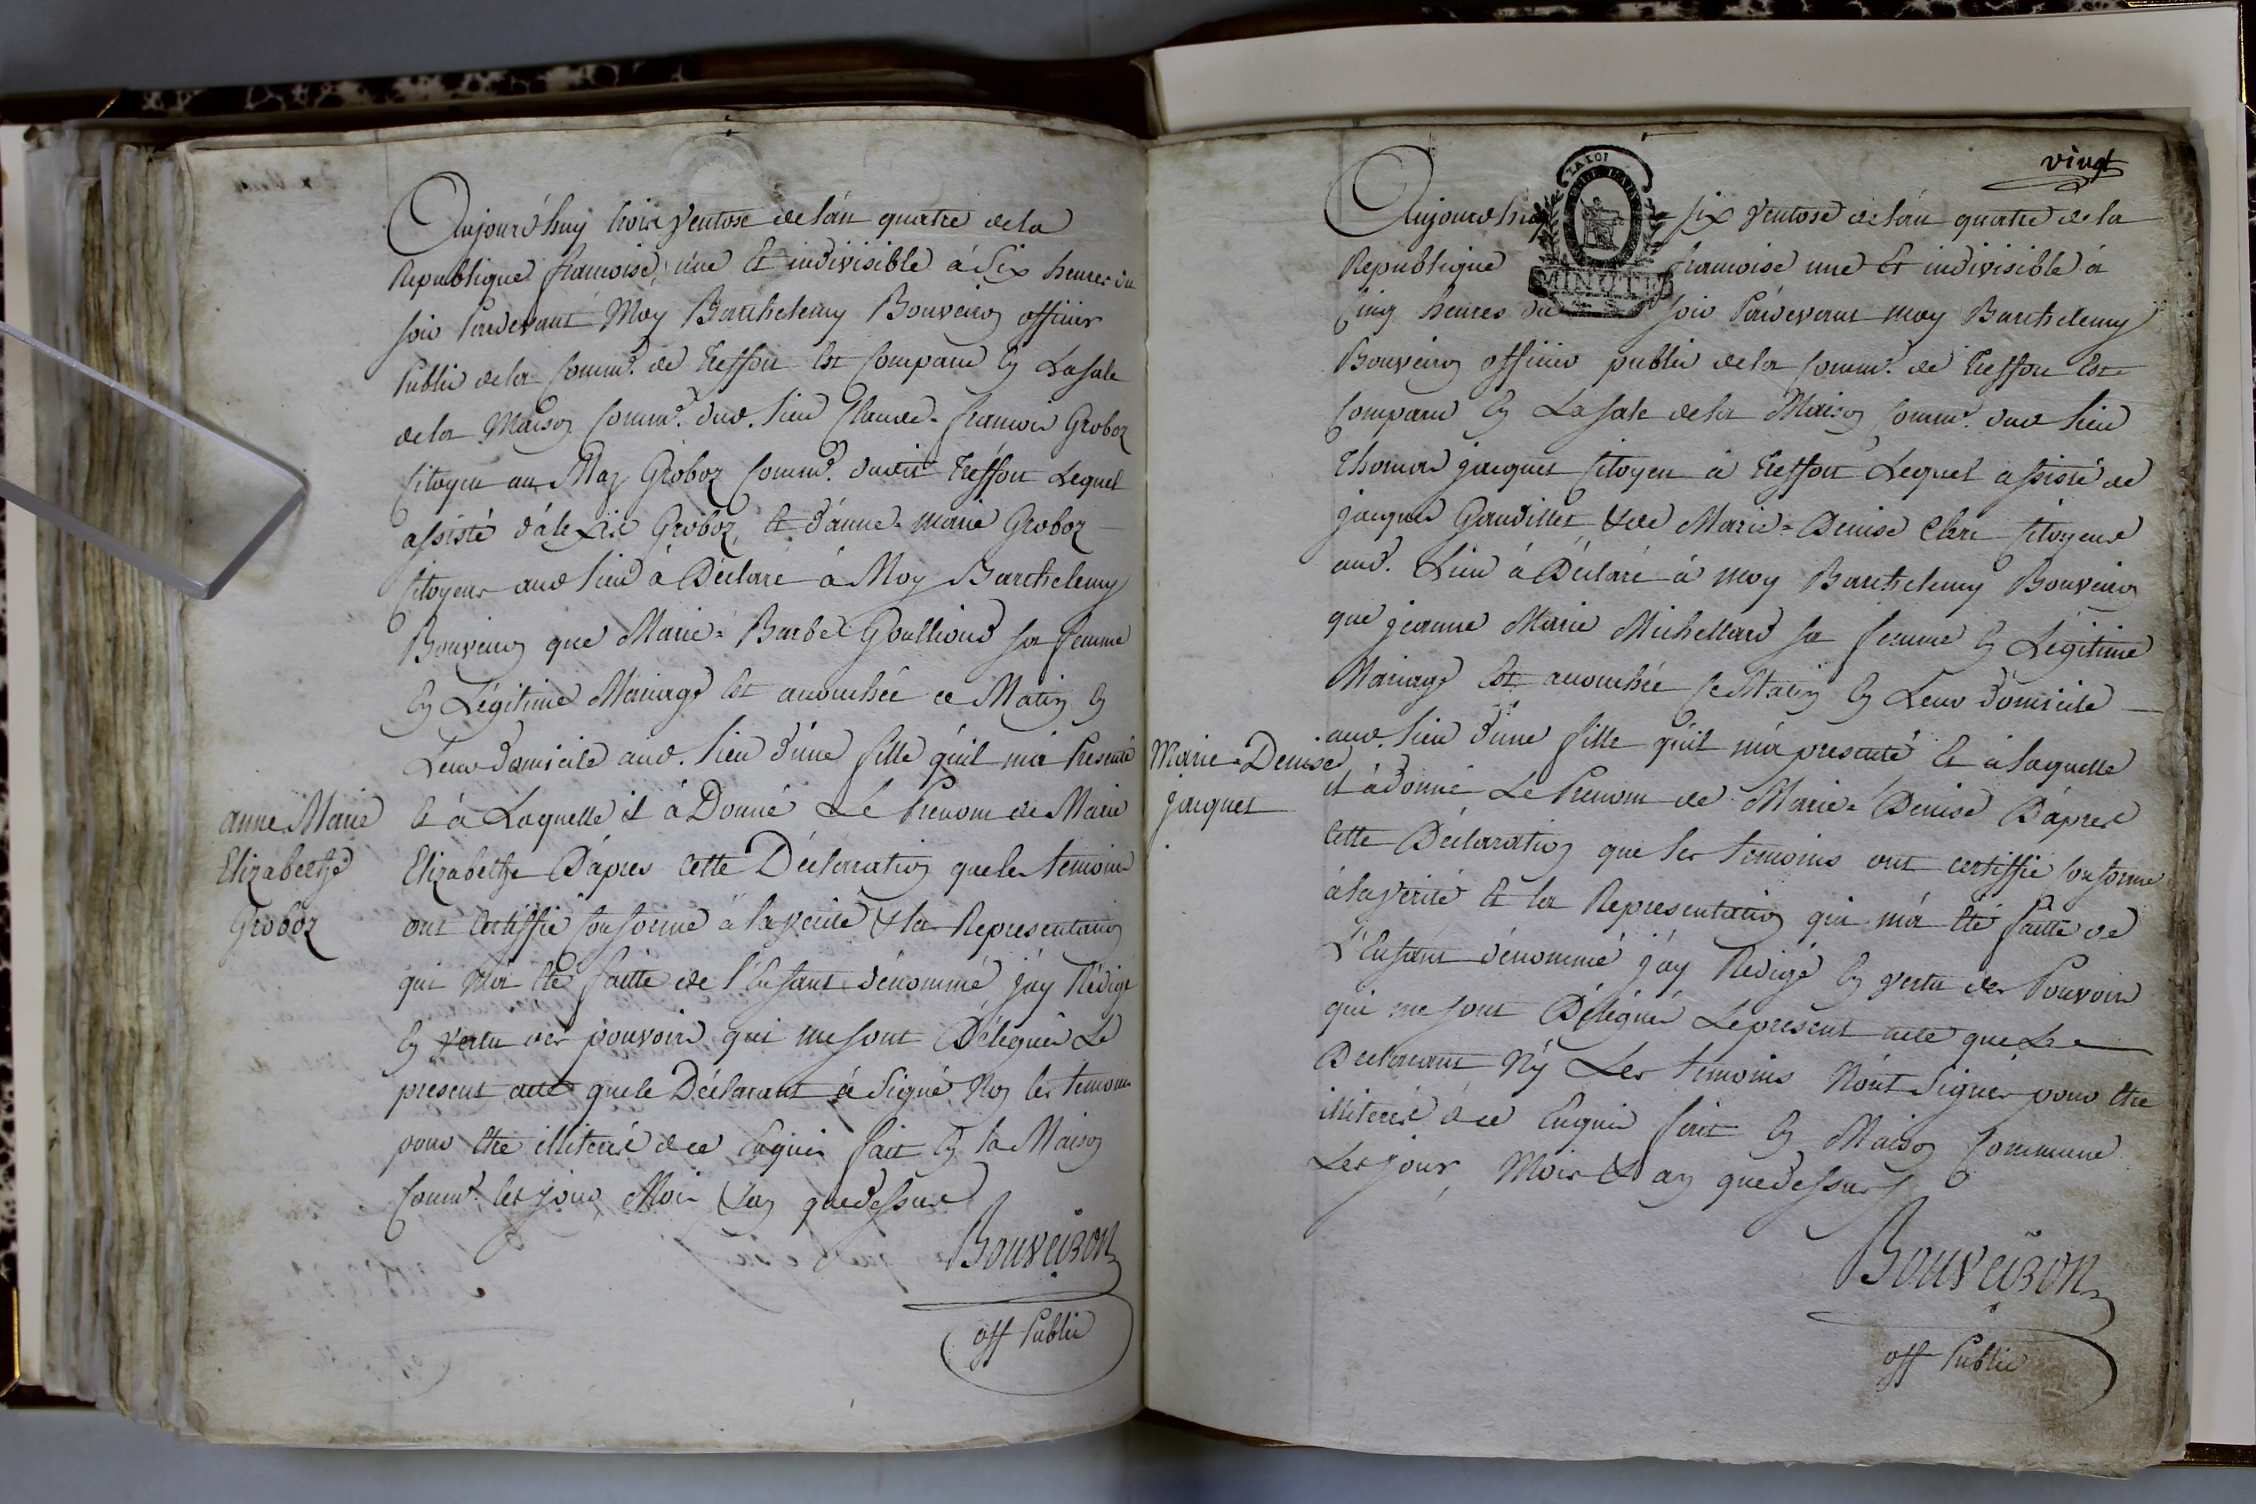 Aujourd'huy trois ventose de l'an quatre de la
Republique francoise, une et indivisible à Six heures du
soir Pardevant Moy Barthelemy Bouveiron officier
Public de la Comm.e de Treffort Est Comparu En La Sale
de la Maison Comm.e dud. lieu Claude-francois Groboz
Citoyen au Maz Groboz Comm.e dudit Treffort Lequel
assisté d'alexis Groboz, et d'anne-marie Groboz
Citoyens aud lieu à Déclaré à Moy Barthelemy
Bouveiron que Marie-Barbe Goullioud sa femme
En Légitime Mariage Est accouchée ce Matin En
Leur Domicile aud. lieu d'une fille qu'il m'a Presenté
Et à Laquelle il à Donné Le Prenom de Marie
Elizabethe D'apres cette Déclaration que les temoins
ont Certiffié Conforme à la verité & la Representation
qui M'a eté faitte de l'Enfant dénommé j'ay Rédigé
En vertu des pouvoirs qui me sont Délégués Le
present acte que le Déclarant à Signé Non les temoins
pour être illiterés de ce Enquis fait En la Maison
Comm.e les jour, Mois & an que dessus
Bouveiron
off Public
anne Marie
Elizabethe
Groboz
vingt
LA LOI
MINUTE
Aujourd'huy six ventose de l'an quatre de la
Republique francoise une et indivisible à
Cinq heures du soir Pardevant moy Barthelemy
Bouveiron officier public de la Comm.e de Treffort Est
Comparu En La Sale de la Maison Comm.e dud lieu
Thomas jacquet Citoyen à Treffort Lequel assisté de
jacques Gaudillet & de Marie-Denise Clerc Citoyens
aud. Lieu à Déclaré à moy Barthelemy Bouveiron
que jeanne Marie Michellard sa femme En Légitime
Mariage Est accouchée Ce Matin En Leur domicile
aud. lieu d'une fille qu'il m'a presenté Et à laquelle
il à donné Le Prenom de Marie-Denise D'apres
Cette Déclaration que les temoins ont certiffié Conforme
à la verité Et la Representation qui m'a eté faitte de
L'Enfant dénommé j'ay Redigé En vertu des Pouvoirs
qui me sont Délégués Le present acte que Le
Declarant Ny Les temoins N'ont Signés pour être
illiterés de ce Enquis fait En Maison Commune
Les jour, Mois & an que dessus
Bouveiron
off Public
Marie-Denise
jacquet